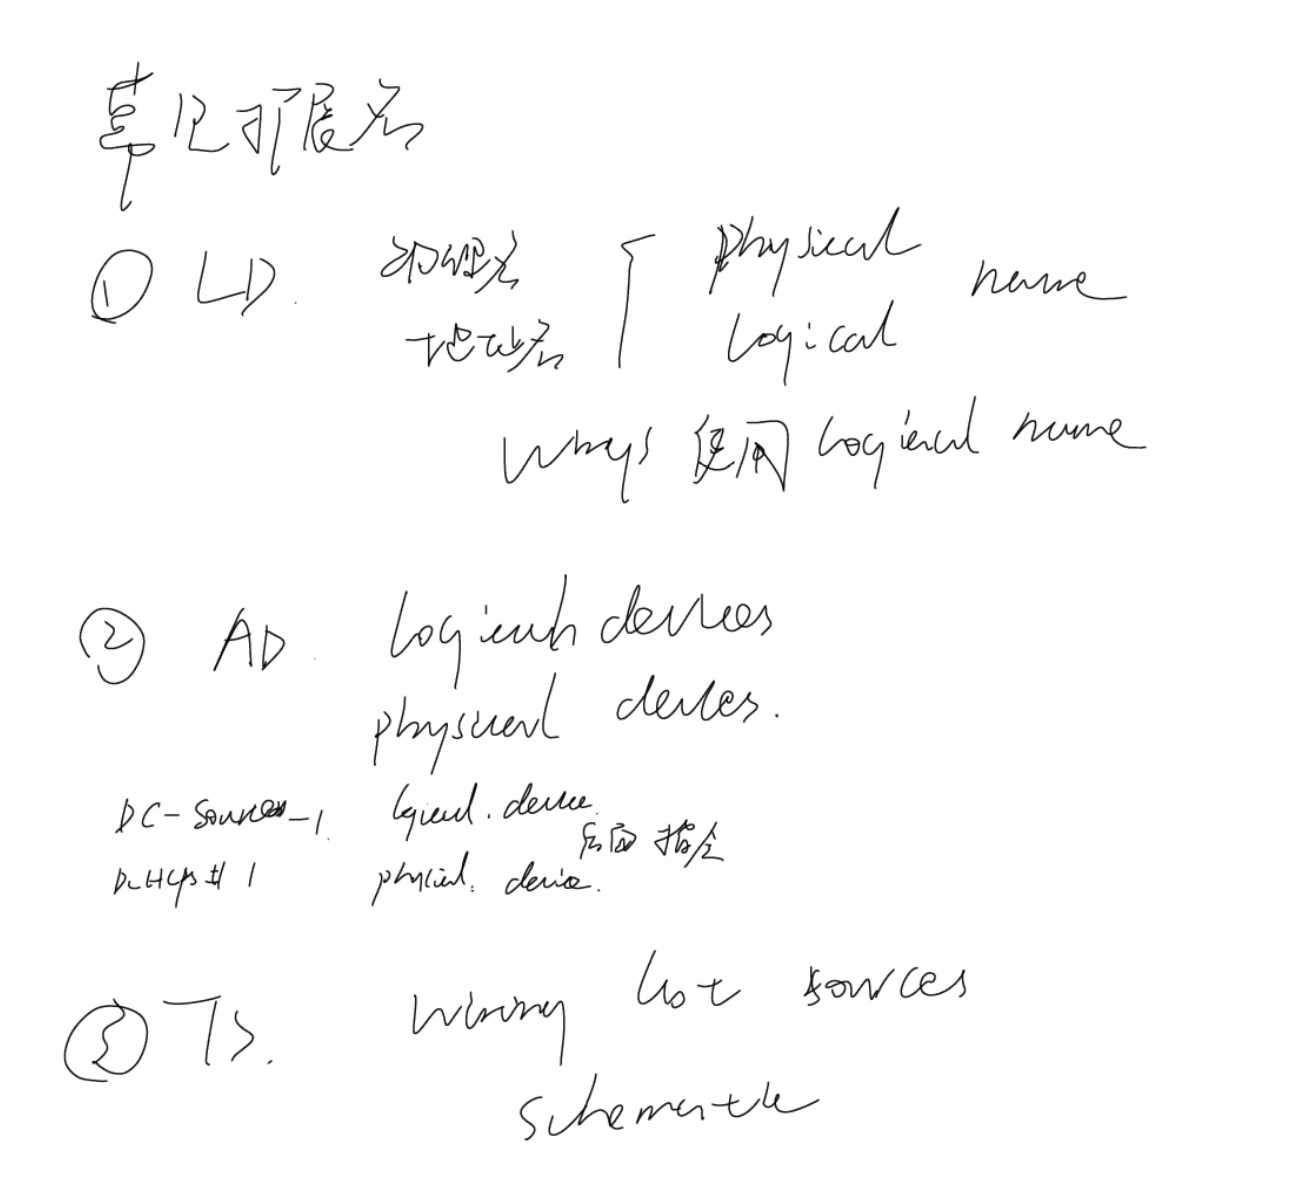 常见扩展名
① LD. 物理名 physical name
地址名 Logical
ways 使用 Logical name
② AD. Logical devices
physical devices.
DC-Source-1. logical. device
后面 指令
# 1 physical. device.
③ TS. wiring list sources
schematic